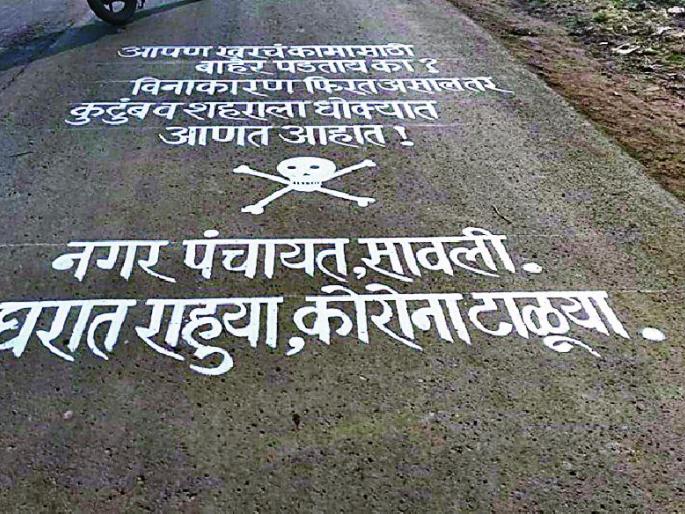 आपण खरचं कामासाठी
बाहेर पडताय का ?
विनाकारण फिरत असाल तर
कुटुंब व शहराला धोक्यात
आणत आहात !
नगर पंचायत, सावली.
घरात राहुया, कोरोना टाळूया .